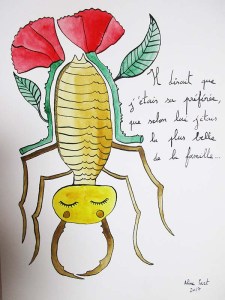 Il disait que
j'étais sa préférée,
que selon lui j'étais
la plus belle
de la famille...
2017